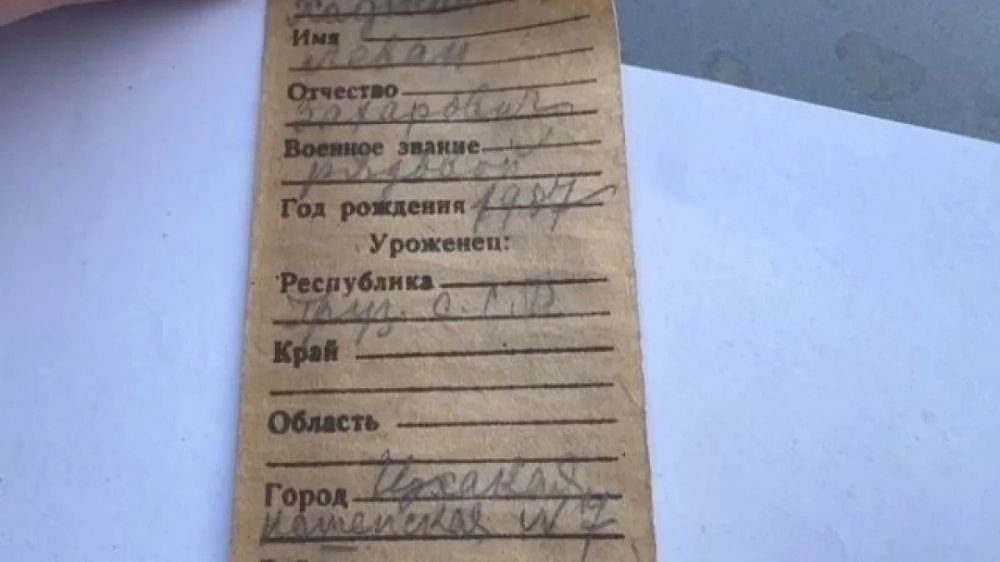 Имя
Леван
Отчество
Захарович
Военное звание
рядовой
Год рождения 1907
Уроженец:
Республика
Груз. С.С.Р
Край
Область
Город Цхакая
№ 7